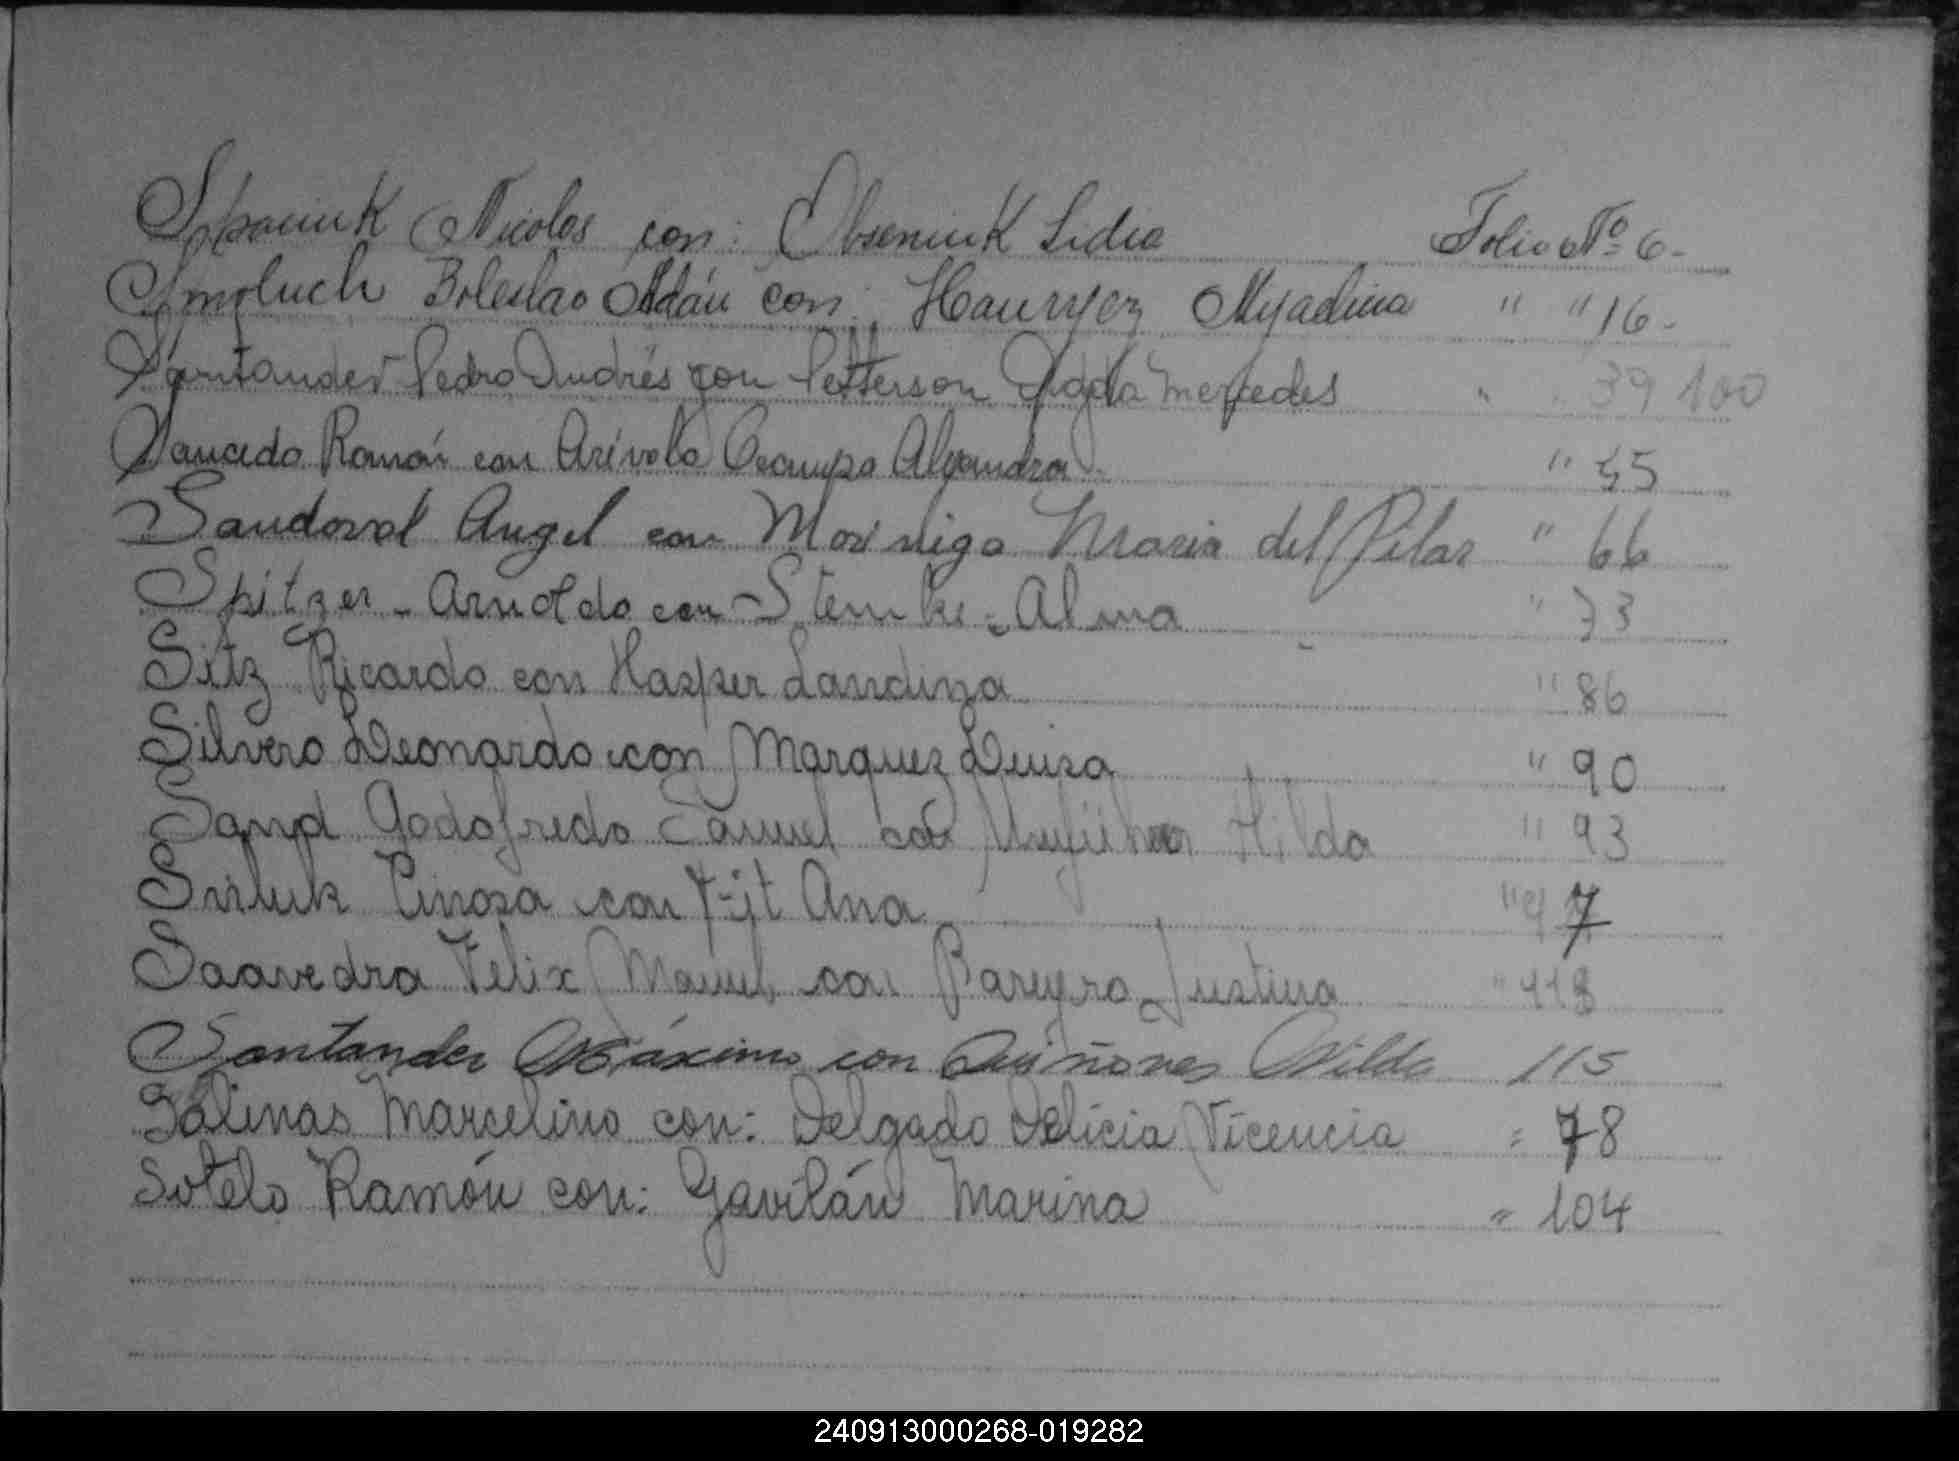 Nicolas con: Lidia Folio Nº 6-
Smoluch Boleslao Adán con: " " 16-
Santander Pedro Andrés con Petterson Mercedes " " 39 100
Saucedo Ramón con Arévalo Ocampo Alejandra. " 45
Sandoval Angel con Moriñigo Maria del Pilar " 66
Spitzer - Arnoldo con Stemke - Alma " 73
Sitz Ricardo con Hasper Landina " 86
Silvero Leonardo con Marquez Luisa " 90
Sand Godofredo Samuel con Hilda " 93
con Ana " 7
Saavedra Felix Manuel con Pareyro Justina " 118
Santander Máximo con Quiñones Nilda 115
Salinas Marcelino con: Delgado Delicia Vicencia = 78
Sotelo Ramón con: Gavilán Marina = 104
240913000268-019282